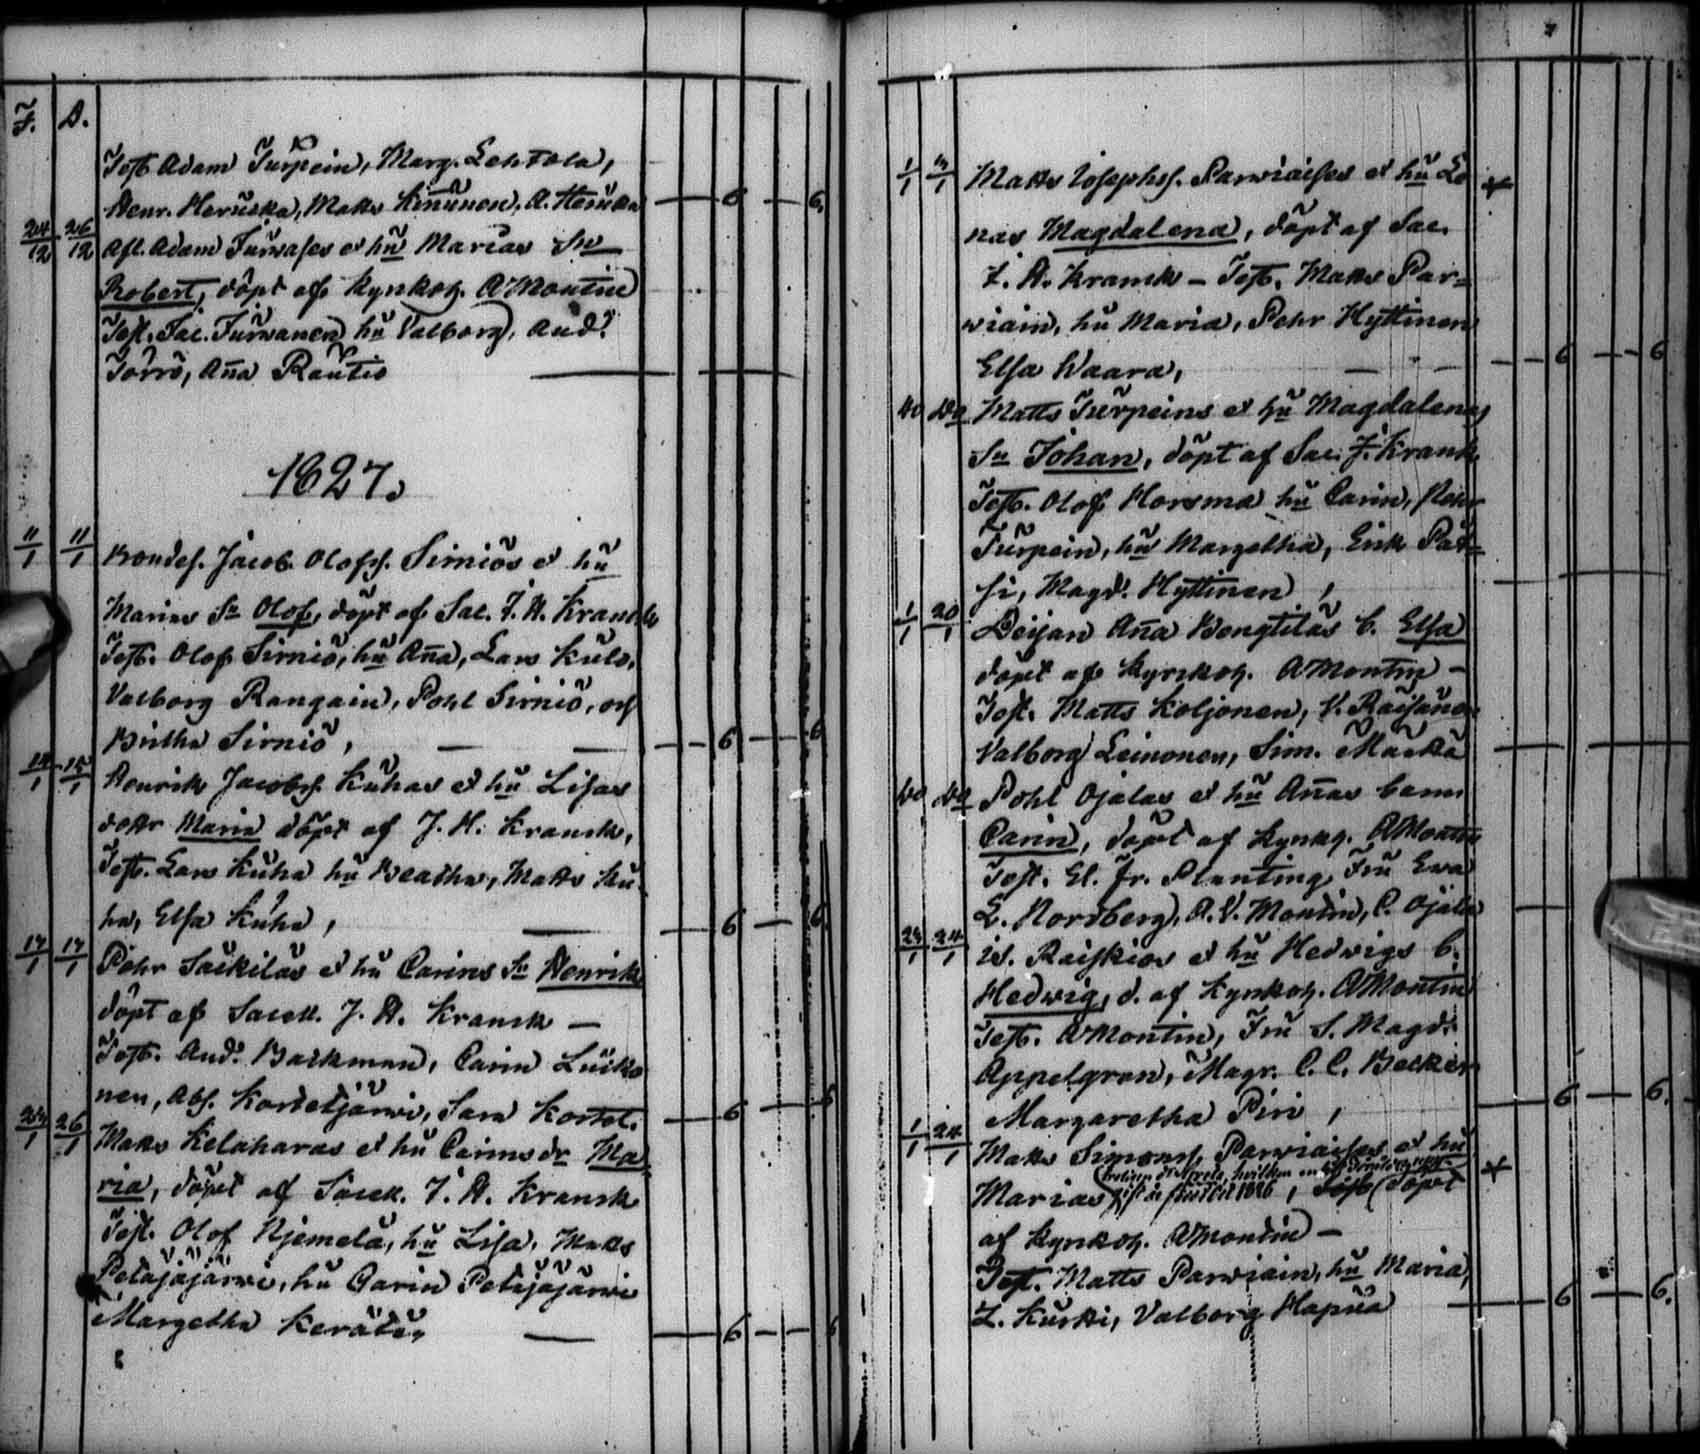 F. D.
Test. Adam Turpein, Marg. Lehtola,
Henr. Heruska, Matts Kinnunen, A. Heruska — 6 — 6.
24/12 26/12 Afl. Adam Turwases et hu Marias Sn
Robert, döpt af Kyrkoh. A Montin
Test. Jac. Turwanen hu Valborg, And:
Törrö, Aña Rautio
1627.
11/1 11/1 Bondes. Jacob Olofss. Sirniös et hu
Marias Sn Olof, döpt af Sac. J. H. Kranck
Test. Olof Sirniö, hu Aña, Lars Kulo,
Valborg Rangain, Pohl Sirniö, och
Biritha Sirniö, — — 6 — 6
15/1 Henrik Jacobss. Kuhas et hu Lisas
dottr Maria döpt af J. H. Kranck,
Test. Lars Kuha hu Beatha, Matts Ku-
ha, Elsa Kuha, — 6 — 6
17/1 17/1 Pehr Säkkiläs et hu Carins Sn Henrik
döpt af Sacell. J. H. Kranck —
Test. And: Backman, Carin Luiko
nen, Abr. Kortetjärwi, Sara Kortet. — 6 — 6
26/1 Matts Kelaharas et hu Carins dr Ma
ria, döpt af Sacell. J. H. Kranck
Test. Olof Njemelä, hu Lisa, Matts
Petäjäjärwi, hu Carin Petäjäjärwi
Margetha Kerätär — — 6 — 6
1/1 Matts Josephss. Parwiaises et hu Le
nas Magdalena, döpt af Sac.
J. H. Kranck — Test. Matts Par=
wiain, hu Maria, Pehr Hyttinen
Elsa Waara, — — 6 — 6
do do Matts Turpeins et hu Magdalenas
Sn Johan, döpt af Sac. J. Kranck
Test. Olof Horsma hu Carin, Pehr
Turpein, hu Margetha, Erik Pät=
si, Magd. Hyttinen,
1/1 20/1 Deijan Aña Bengtiläs b. Elsa
döpt af Kyrkoh. A Montin —
Test. Matts Koljonen, V. Räisänen
Valborg Leinonen, Sim. Markka
do do Pohl Ojalas et hu Añas barn
Carin, döpt af Kyrkoh. A Montin
Test. El. Fr. Planting, Fru Ewa
L. Nordberg, A. V. Montin, C. Ojala
23/1 24/1 Is. Raiskios et hu Hedwigs b.
Hedwig, d. af Kyrkoh. A Montin
Test. A Montin, Fru S. Magd:
Appelgren, Magr. C. C. Becker
Margaretha Piri, — 6 — 6.
1/1 24/1 Matts Simonss. Parwiaises et hu
Marias döpt
af Kyrkoh. A Montin —
Test. Matts Parwiain, hu Maria,
L. Kurki, Valborg Hapua — 6 — 6.